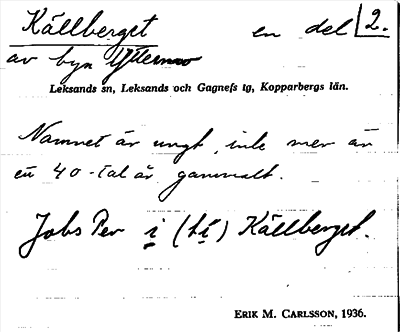 Källberget en del 2.
av byn Yttermo
Leksands sn, Leksands och Gagnefs tg, Kopparbergs län.
Namnet är ungt, inte mer än
ett 40-tal år gammalt.
Jobs Per i (ti) Källberget.
ERIK M. CARLSSON, 1936.